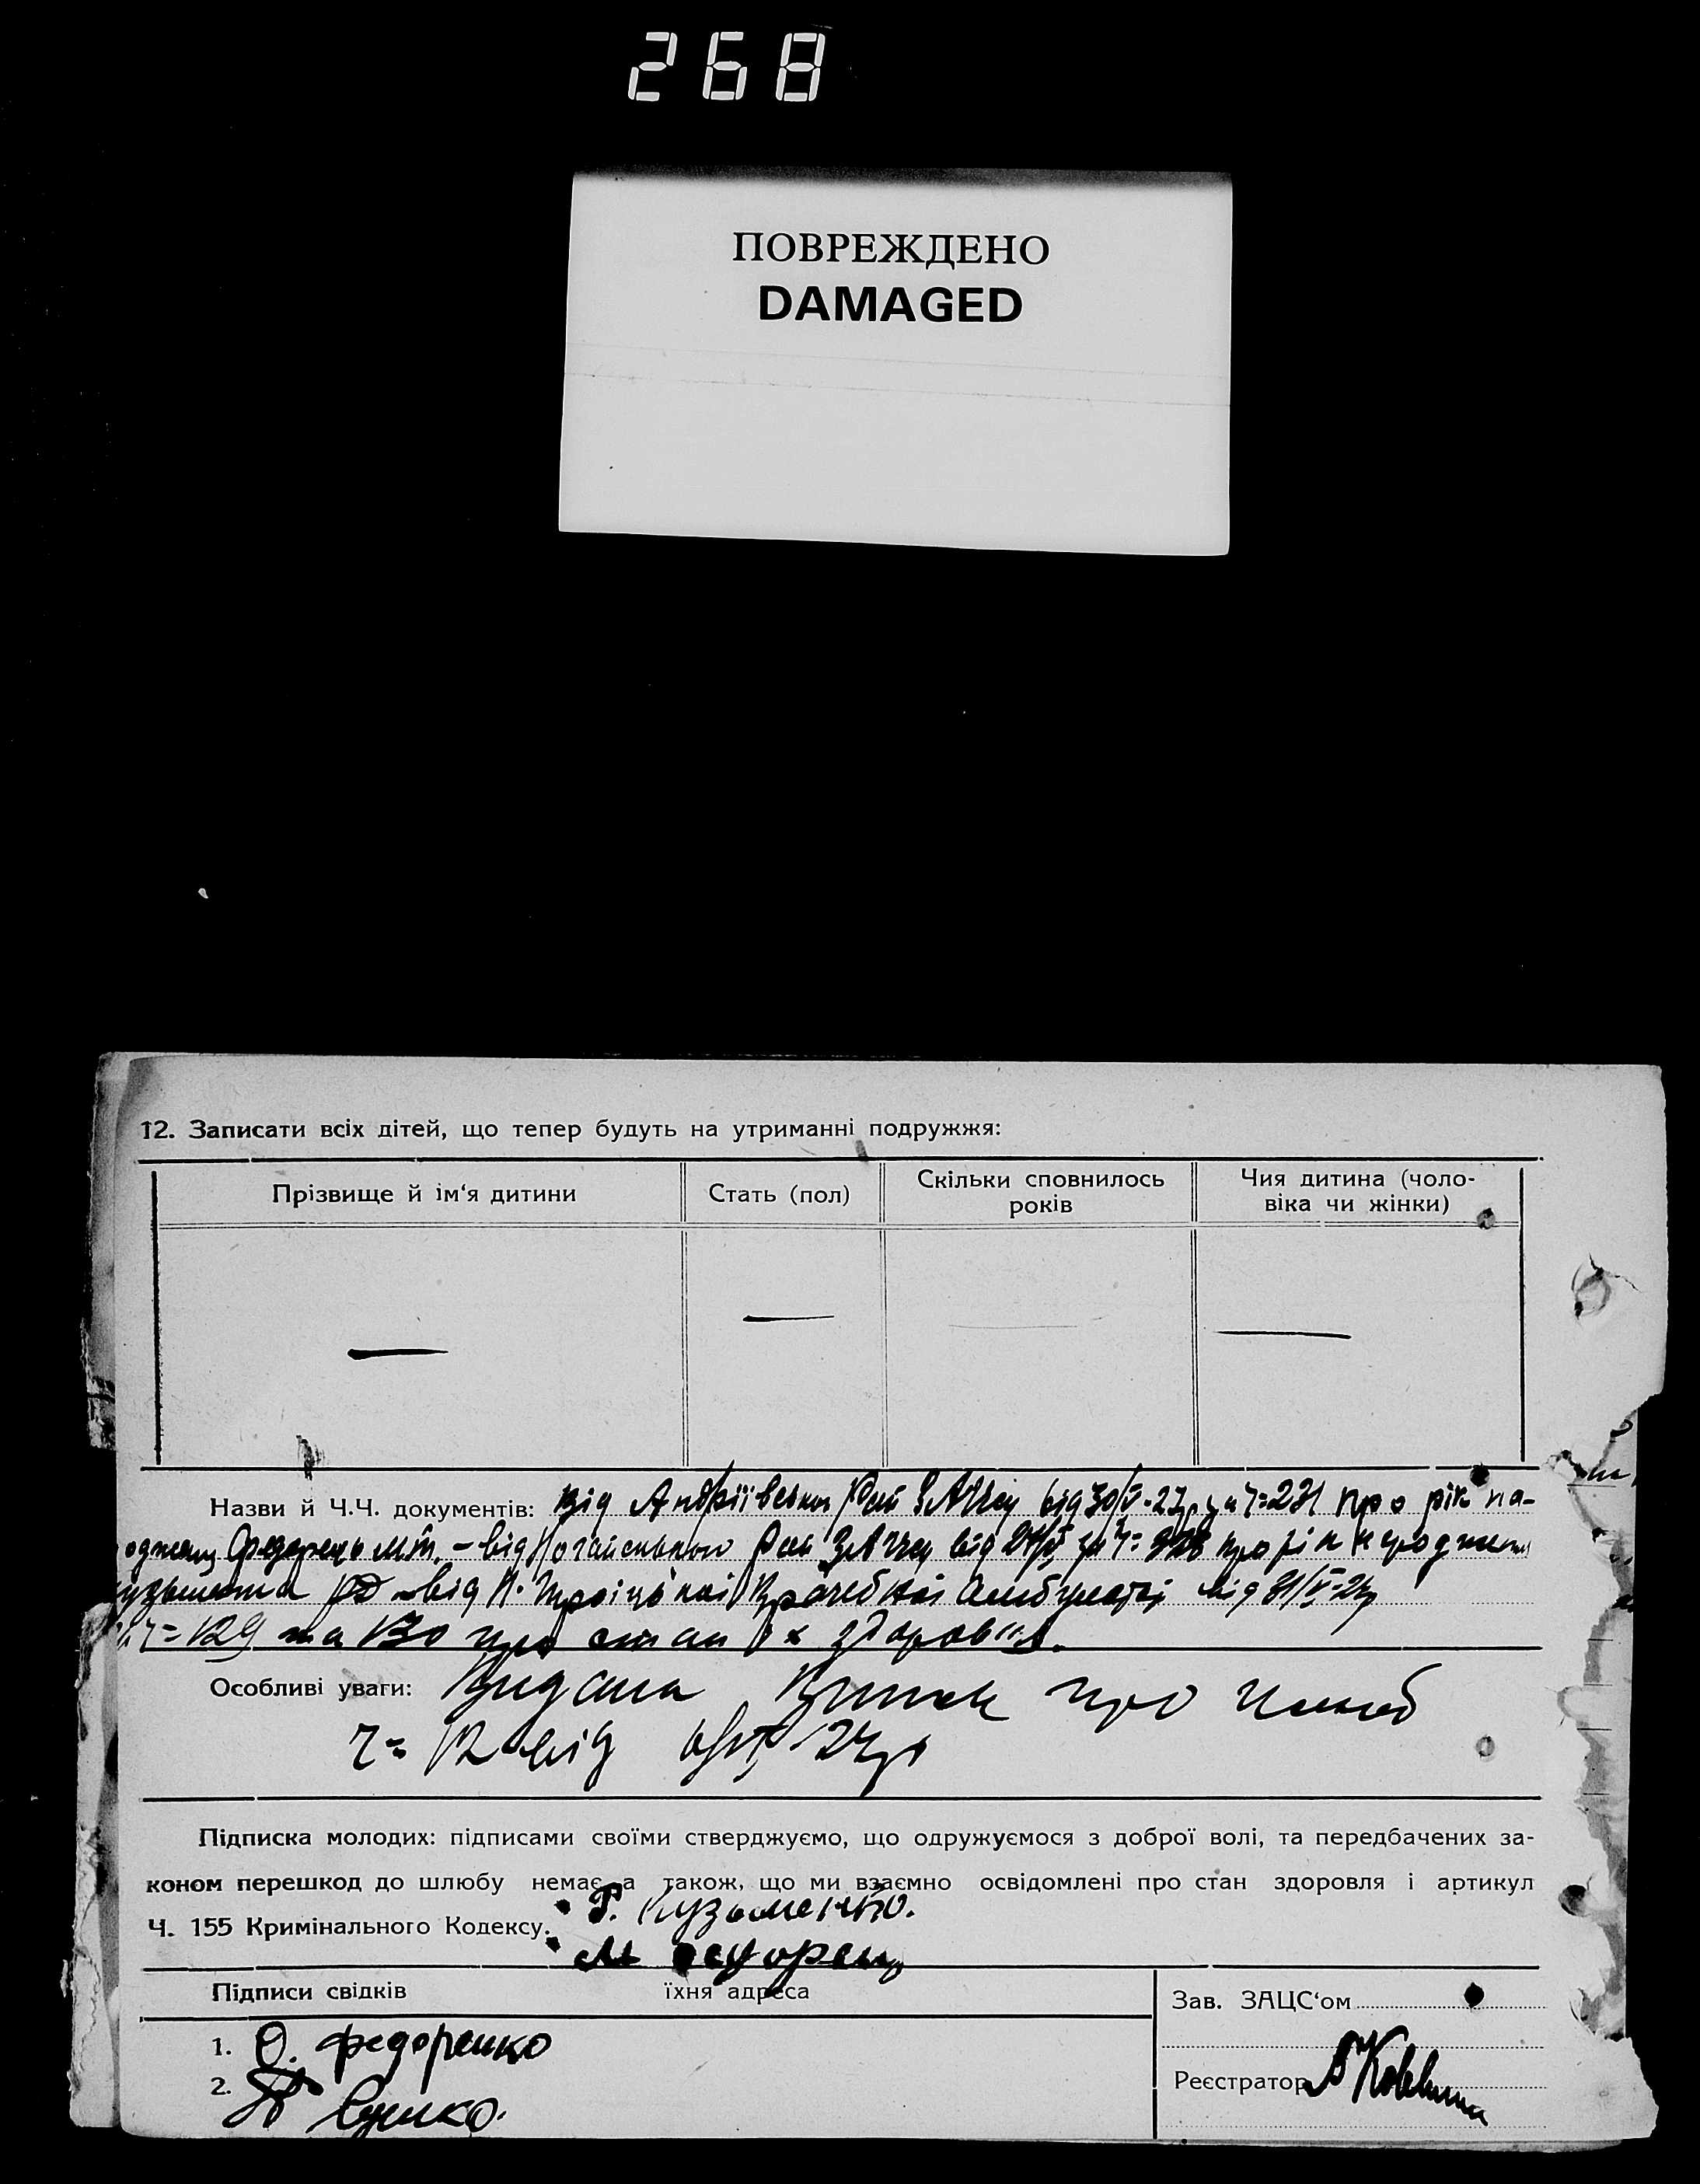 268
ПОВРЕЖДЕНО
DAMAGED
12. Записати всіх дітей, що тепер будуть на утриманні подружжя:
Прізвище й ім'я дитини
Стать (пол)
Скільки сповнилось
років
Чия дитина (чоло-
віка чи жінки)
— — — —
Назви й Ч.Ч. документів: від Андріївськ Рай ЗАЦСу від 30/V-27р за ч=271 про рік на-
від Ногайського Рай ЗАЦСу від за ч= про рік народження
від Н. Троіцькоі Врачебноі Амбулаторіі від 31/V-27р
ч=129 та 130 про стан їх здоров'я.
Особливі уваги: Видана про шлюб
ч= 12 від 27р
Підписка молодих: підписами своїми стверджуємо, що одружуємося з доброї волі, та передбачених за-
коном перешкод до шлюбу немає, а також, що ми взаємно освідомлені про стан здоровля і артикул
Ч. 155 Кримінального Кодексу. Г. Кузьменко.
М
Підписи свідків їхня адреса
Зав. ЗАЦС'ом
1. О. Федоренко
2.
Реєстратор